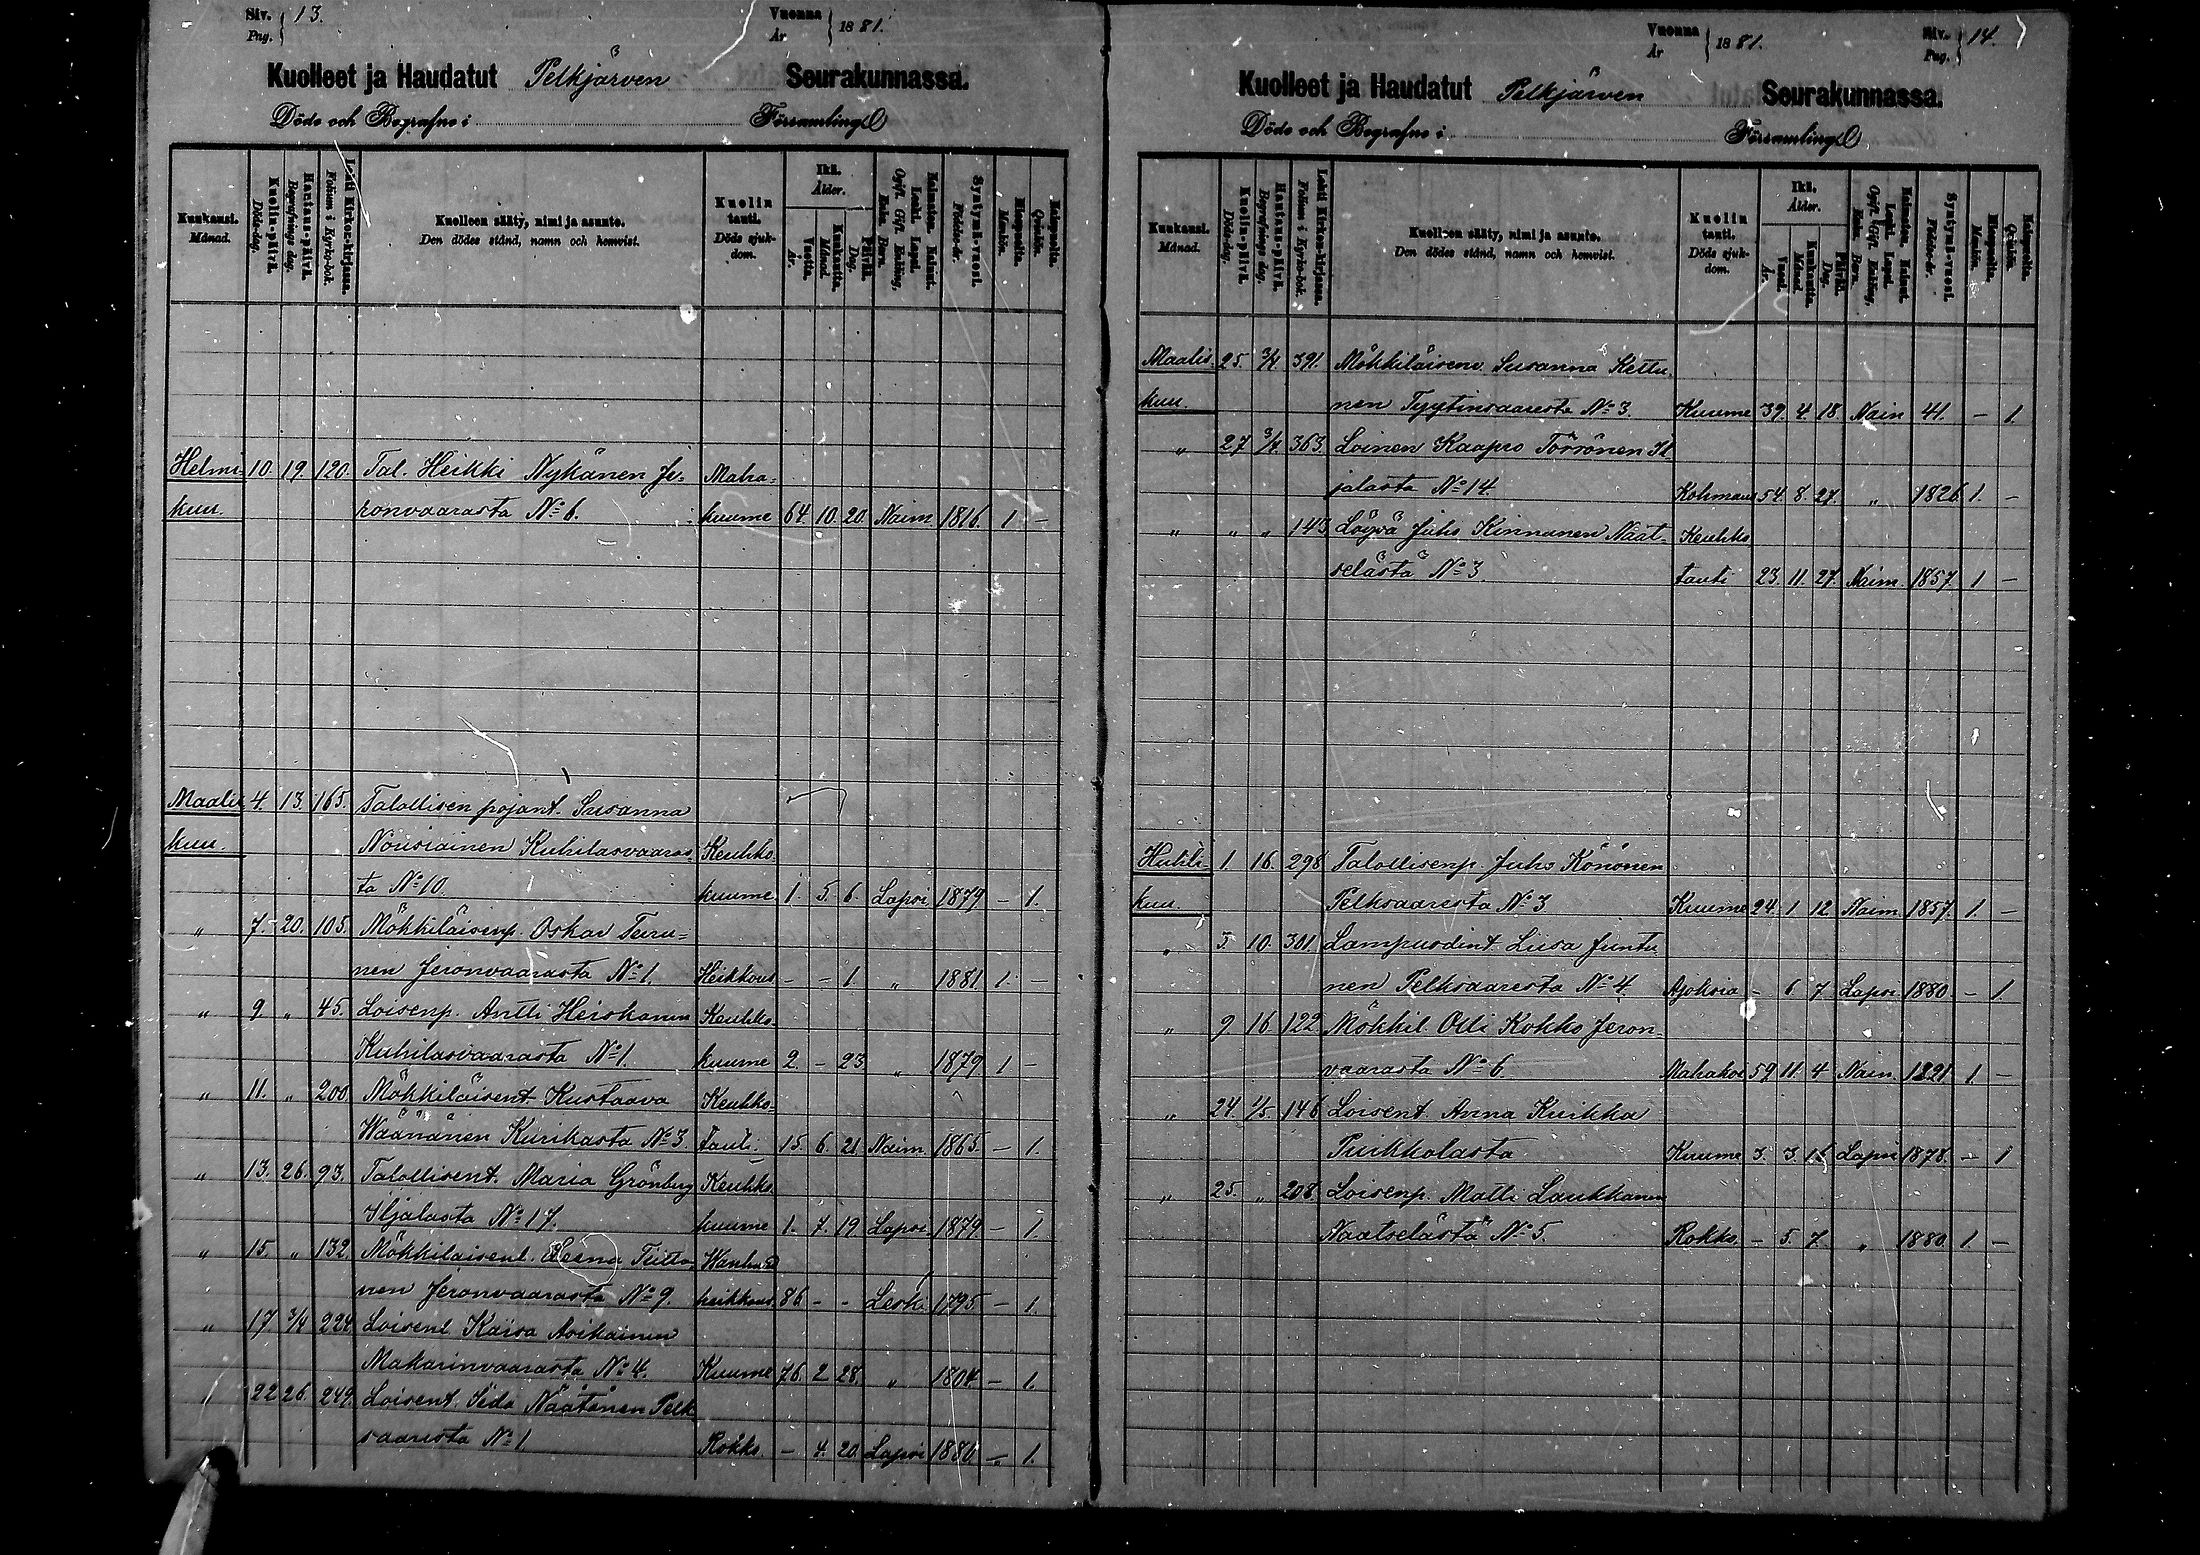 Siv. 13. Vuonna 1881.
Pag. År
Kuolleet ja Haudatut Pelkjärven Seurakunnassa.
Döde och Begrafne i Församling
Kuukausi. Månad. Kuolin-päivä. Döds-dag. Hautaus-päivä. Begrafnings dag. Lehti Kirkon-kirjassa. Folium i Kyrko-bok. Kuolleen sääty, nimi ja asunto. Den dödes stånd, namn och hemvist. Kuolin tauti. Döds sjuk-dom. Ikä. Ålder. Vuotta. År. Kuukautta. Månad. Päiviä. Dag. Naimaton. Nainut. Leski. Lapsi. Ogift. Gift. Enkling, Enka. Barn. Syntymä-vuosi. Födelse-år. Miespuolta. Mankön. Vaimopuolta. Qvinkön.
Helmi- 10. 19. 120. Tal. Heikki Nykänen Je- Maha-
kuu. ronvaarasta No 6. kuume 64. 10. 20. Naim 1816. 1 —
Maalis 4. 13. 165. Talollisen pojant. Susanna
kuu. Nousiainen Kuhilasvaaras Keuhko
ta No 10. kuume 1. 5. 6. Lapsi 1879 — 1.
" 7. 20. 105. Mökkiläisenp. Oskar Teru-
nen Jeronvaarasta No 1. Heikkous — — 1. " 1881 1. —
" 9 " 45. Loisenp. Antti Heiskanen Keuhko-
Kuhilasvaarasta No 1. kuume 2. — 23 " 1879 1 —
" 11. " 200 Mökkiläisent. Kustaava Keuhko-
Wäänänen Kurikasta No 3. tauti. 15. 6. 21 Naim 1865. — 1.
" 13. 26. 93. Talollisent. Maria Grönberg Keuhko-
Iljalasta No 17. kuume 1. 7. 19 Lapsi 1879 — 1.
" 15. " 132. Mökkiläisenl. Leena Tiitta-
nen Jeronvaarasta No 9. heikkous 86 — - Leski 1795 — 1.
" 17 3/4 224. Loisenl. Kaisa Asikainen
Makarinvaarasta No 4. Kuume 76. 2. 28. " 1804. — 1.
22 26. 249. Loisent. Näätänen Pelk
saaresta No 1 Rokko. — 4. 20. Lapsi 1880 — 1.
Vuonna 1881. Siv. 14.
År Pag.
Kuolleet ja Haudatut Pelkjärven Seurakunnassa.
Döde och Begrafne i Församling
Kuukausi. Månad. Kuolin-päivä. Döds-dag. Hautaus-päivä. Begrafnings dag. Lehti Kirkon-kirjassa. Folium i Kyrko-bok. Kuolleen sääty, nimi ja asunto. Den dödes stånd, namn och hemvist. Kuolin tauti. Döds sjuk-dom. Ikä. Ålder. Vuotta. År. Kuukautta. Månad. Päiviä. Dag. Naimaton. Nainut. Leski. Lapsi. Ogift. Gift. Enkling, Enka. Barn. Syntymä-vuosi. Födelse-år. Miespuolta. Mankön. Vaimopuolta. Qvinkön.
Maalis 25. 3/4. 391. Mökkiläisenv. Susanna Kettu-
kuu. nen Tyytinsaaresta No 3. Kuume 39. 4. 18. Nain 41. — 1.
" 27 3/4. 363. Loinen Kaapro Törrönen Il
jalasta No 14. Kohmaus 54. 8. 27. " 1826. 1. —
" " " 143 Löyvä Juho Kinnunen Näät- Keuhko
selästä No 3. tauti 23. 11. 27. Naim. 1857. 1 —
Huhti- 1. 16. 298. Talollisenp. Juho Könönen
kuu. Pelksaaresta No 3. Kuume 24. 1. 12. Naim 1857. 1. —
" 5. 10. 301. Lampuodint. Liisa Juntu
nen Pelksaaresta No 4. Ajoksia — 6 7 Lapsi 1880. — 1.
" 9 16 122 Mökkil. Olli Kokko Jeron-
vaarasta No 6. Mahakoi 59 11. 4 Nain. 1821 1. —
" 24. 1/5. 146 Loisent. Anna Kuikka
Puikkolasta Kuume 3. 3. Lapsi 1878. — 1
" 25. " 208. Loisenp. Matti Laukkanen
Naatselästä No 5. Rokko — 5. 7. " 1880. 1. —